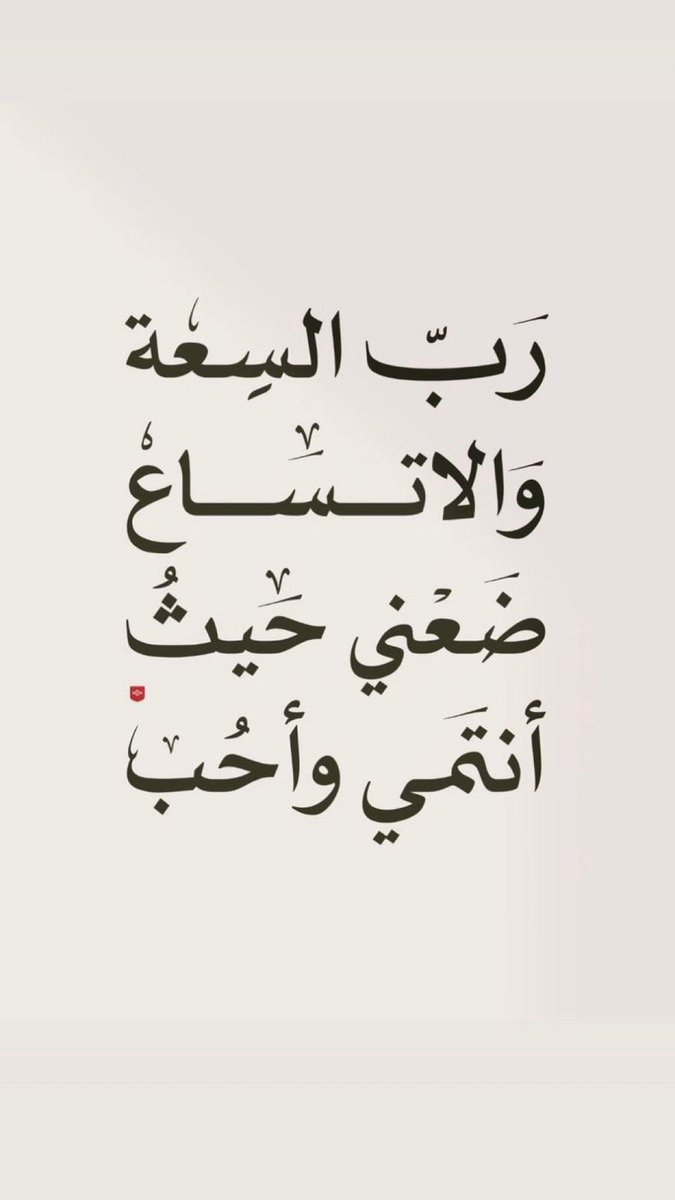 رَبّ السِعة
وَالاتسَاع
ضَعْني حَيثُ
أنتَمي وأحُب